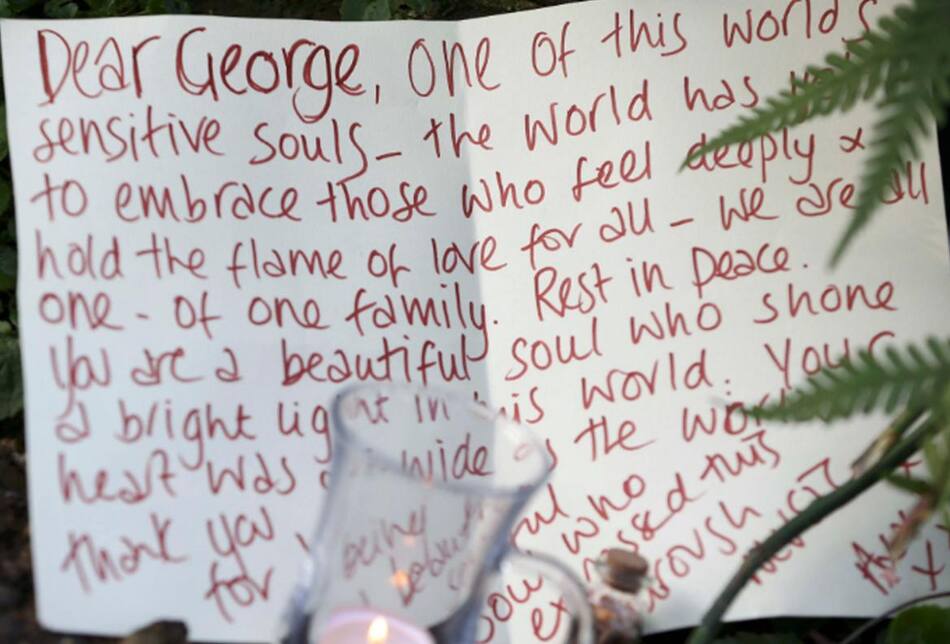 Dear George, one of this worlds
sensitive souls - the world has
to embrace those who feel deeply &
hold the flame of love for all - we are all
one - of one family. Rest in peace.
You are a beautiful soul who shone
a bright light in this world. Your
heart was as wide as the world
Thank you
for being
soul who
passed this
through